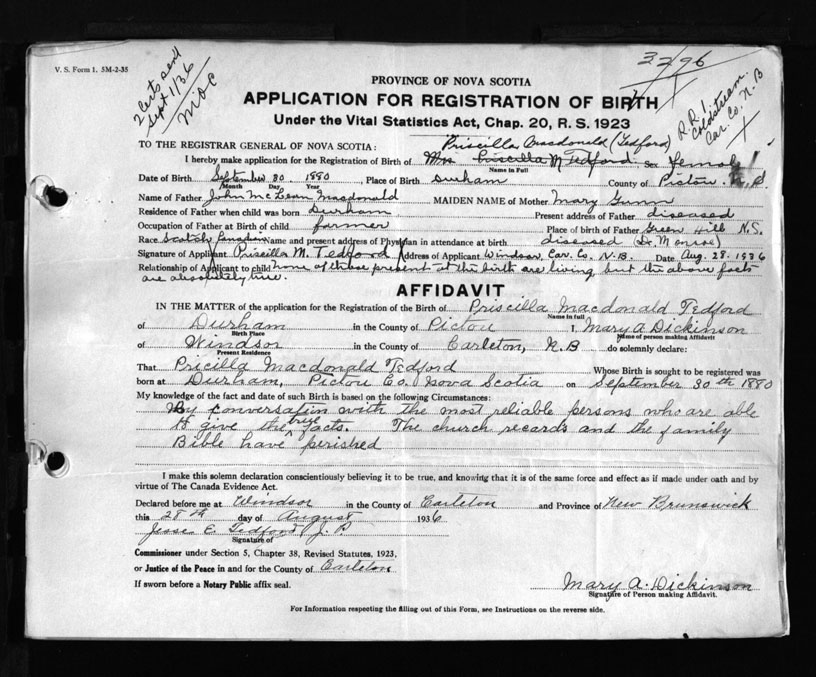 V. S. Form 1. 5M-2-35
2 Certs sent
Sept 1/36
3296
R. R. 1
Coldstream.
Car. Co. N. B
PROVINCE OF NOVA SCOTIA
APPLICATION FOR REGISTRATION OF BIRTH
Under the Vital Statistics Act, Chap. 20, R. S. 1923
TO THE REGISTRAR GENERAL OF NOVA SCOTIA: Priscilla Macdonald (Tedford)
I hereby make application for the Registration of Birth of Mrs Priscilla M Tedford. Sex Female
Name in Full
Date of Birth September 30 1880, Place of Birth Durham County of Pictou. N. S.
Month Day Year
Name of Father John McLean Macdonald MAIDEN NAME of Mother Mary Gunn
Residence of Father when child was born Durham Present address of Father diseased
Occupation of Father at Birth of child farmer Place of birth of Father Green Hill N.S.
Race Scotch Canadian Name and present address of Physician in attendance at birth diseased (Dr. Monroe)
Signature of Applicant Priscilla M. Tedford Address of Applicant Windsor, Car. Co. N.B. Date Aug. 28. 1936
Relationship of Applicant to child None of those present at the birth are living, but the above facts
are absolutely true.
AFFIDAVIT
IN THE MATTER of the application for the Registration of the Birth of Priscilla Macdonald Tedford
Name in full
of Durham in the County of Pictou I, Mary A Dickinson
Birth Place Name of person making Affidavit
of Windsor in the County of Carleton, N.B do solemnly declare:
Present Residence
That Pricilla Macdonald Tedford Whose Birth is sought to be registered was
born at Durham, Pictou Co. Nova Scotia on September 30th 1880
My knowledge of the fact and date of such Birth is based on the following Circumstances:
By conversation with the most reliable persons who are able
to give the true facts. The church records and the family
Bible have perished
I make this solemn declaration conscientiously believing it to be true, and knowing that it is of the same force and effect as if made under oath and by
virtue of The Canada Evidence Act.
Declared before me at Windsor in the County of Carleton and Province of New Brunswick
this 28th day of August 1936
Jesse E. Tedford J. P.
Signature of
Commissioner under Section 5, Chapter 38, Revised Statutes, 1923,
or Justice of the Peace in and for the County of Carleton
If sworn before a Notary Public affix seal.
Mary A. Dickinson
Signature of Person making Affidavit.
For Information respecting the filling out of this Form, see Instructions on the reverse side.